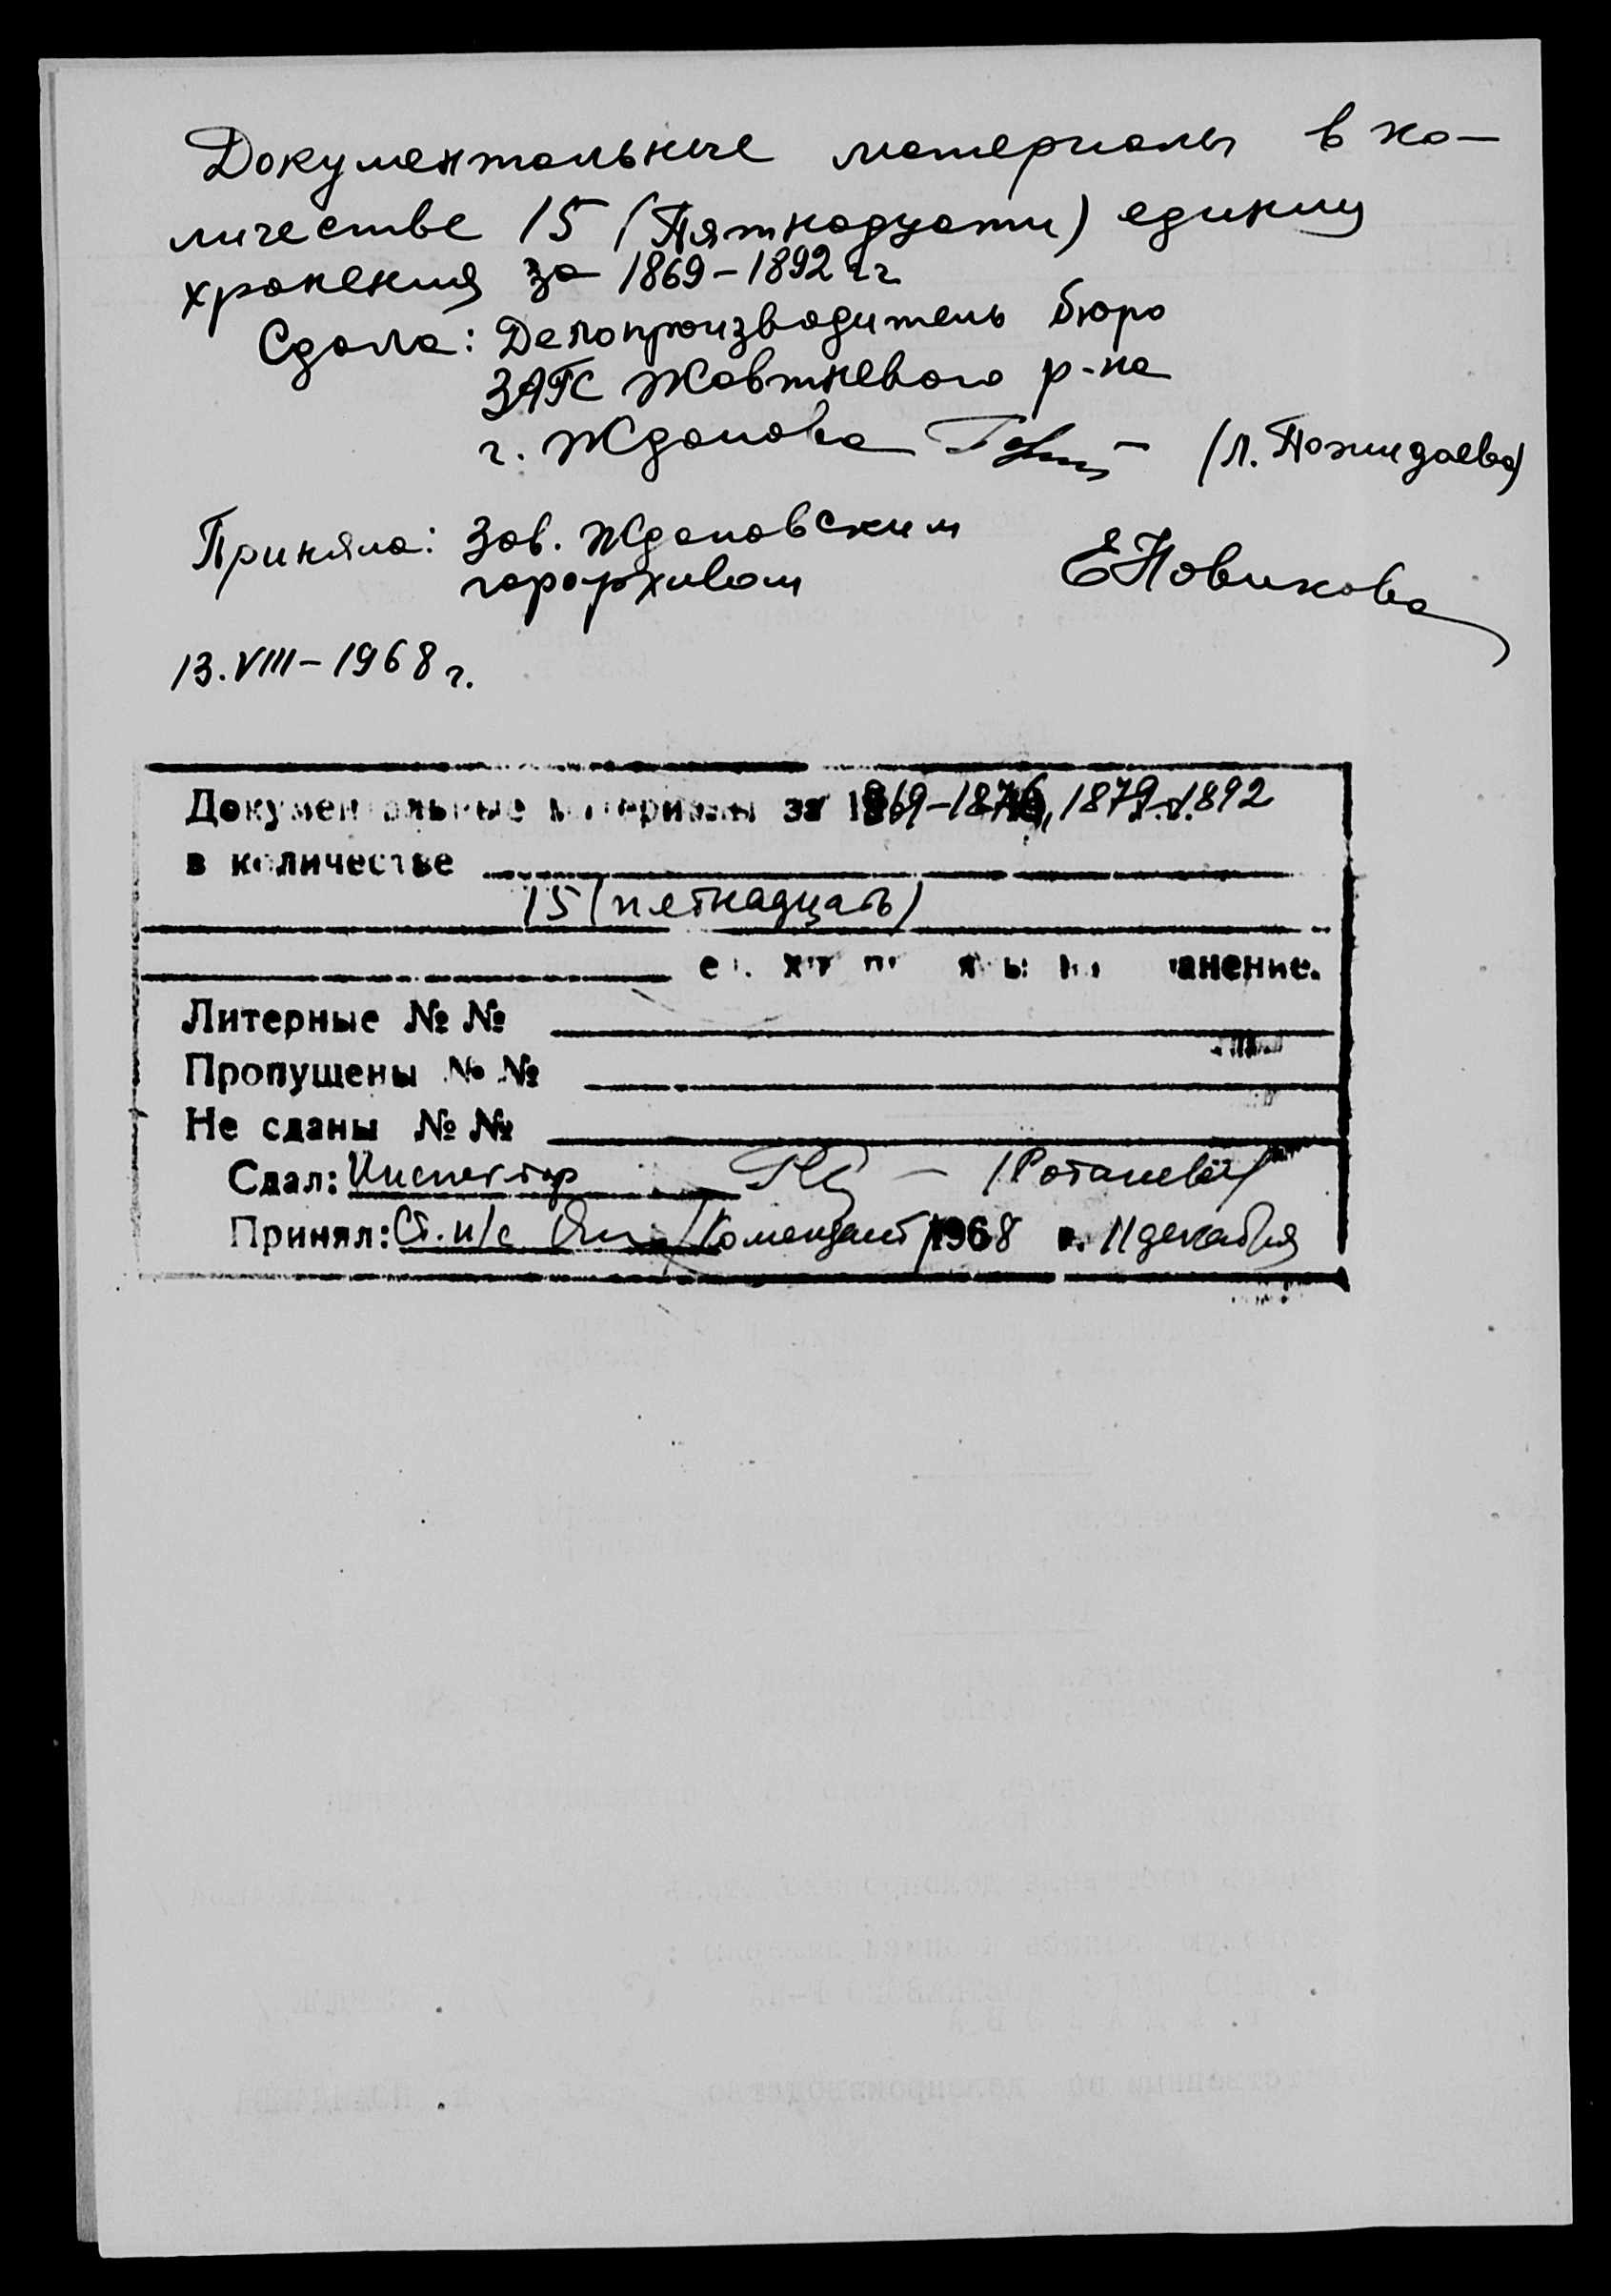 Документальные материалы в ко-
личестве 15 (Пятнадцати) единиц
хранения за 1869-1892 гг.
Сдала: Делопроизводитель бюро
ЗАГС Жовтневого р-на
г. Жданова (Л. Пожидаева)
Приняла: Зав. Ждановским
горархивом ЕНовикова
13.VIII-1968 г.
Документальные материалы за 1869-1876, 1879-1892
в количестве
15 (пятнадцать)
анение.
Литерные №№
Пропущены №№
Не сданы №№
Сдал: Инспектор
Принял: Ст. н/с /Комендант/ 1968 г. 11 декабря